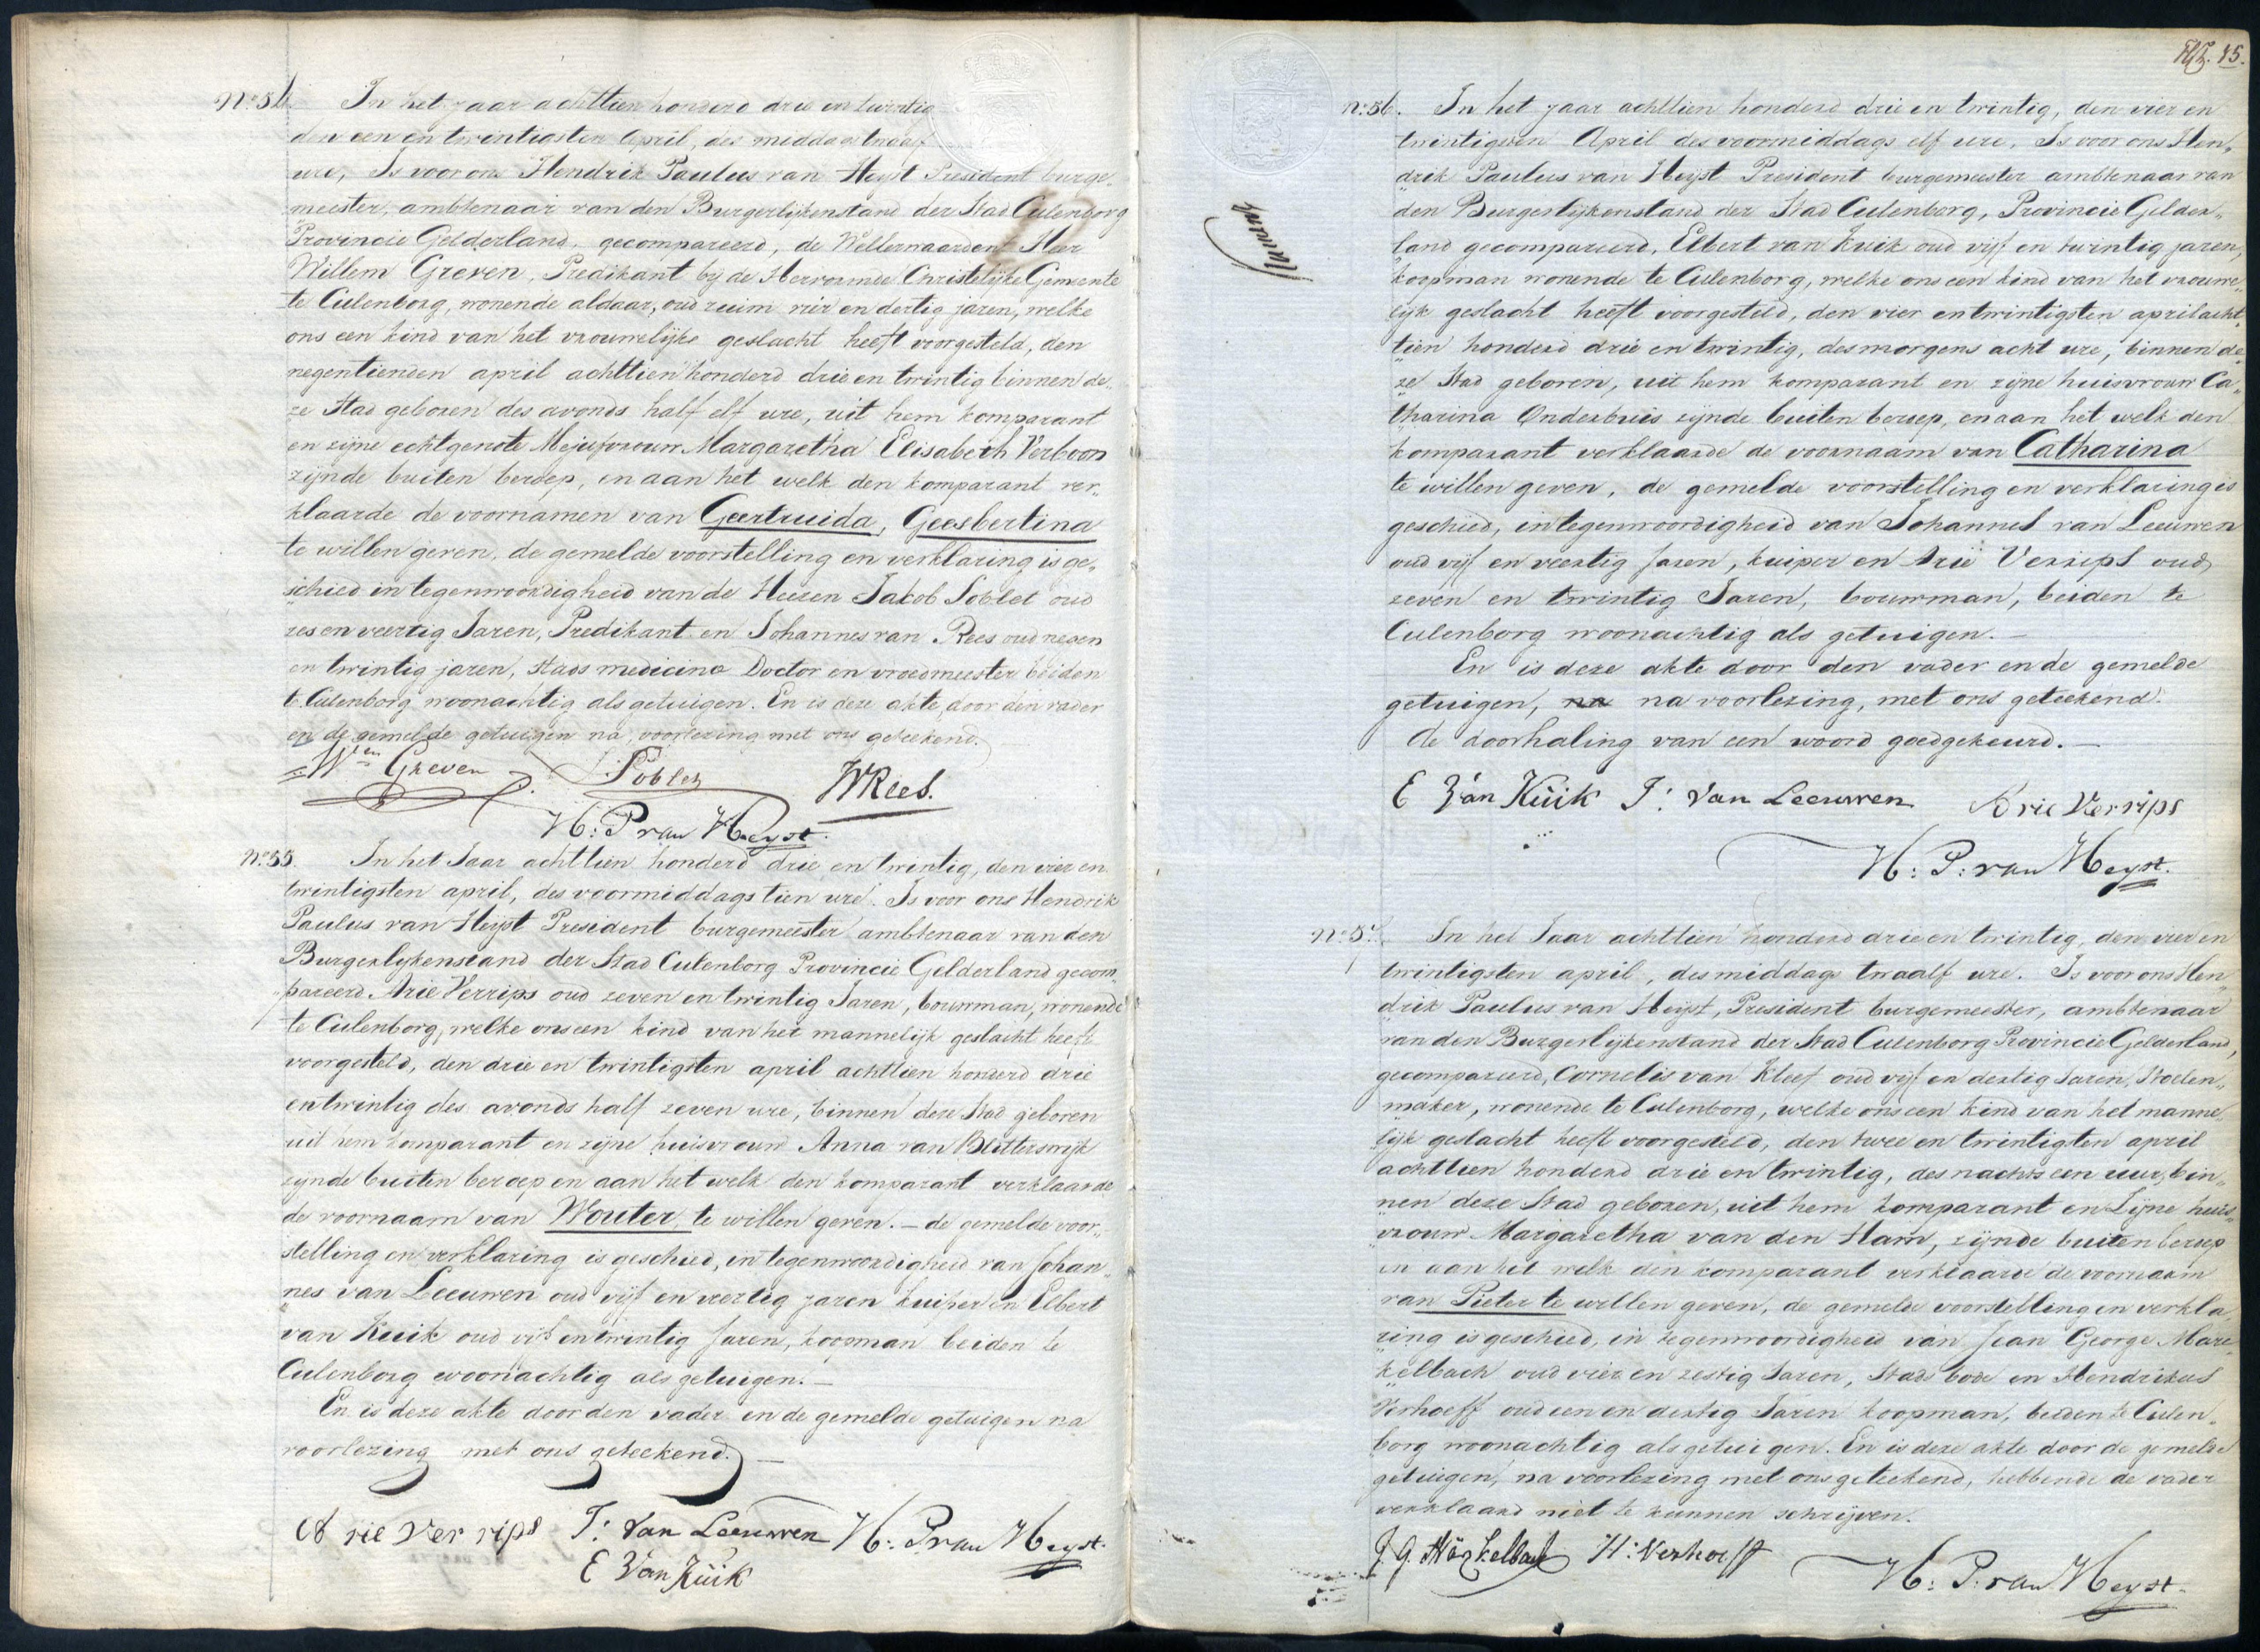 N.o 54. In het jaar achttien honderd drie en twintig
den een en twintigsten April, des middags twaalf
ure, Is voor ons Hendrik Paulus van Heijst President burge„
meester, ambtenaar van den Burgerlijkenstand der Stad Culenborg
Provincie Gelderland, gecompareerd, de Welleerwaarden Heer
Willem Greven, Predikant bij de Hervormde Christelijke Gemeente
te Culenborg, wonende aldaar, oud ruim vier en dertig jaren, welke
ons een kind van het vrouwelijke geslacht heeft voorgesteld, den
negentienden april achttien honderd drie en twintig binnen de„
ze Stad geboren des avonds half elf ure, uit hem komparant
en zijne echtgenote Mejufvrouw Margaretha Elisabeth Verboon
zijnde buiten beroep, en aan het welk den komparant ver„
klaarde de voornamen van Geertruida, Geesbertina
te willen geven, de gemelde voorstelling en verklaring is ge„
„schied in tegenwoordigheid van de Heeren Jakob Poblet oud
zes en veertig Jaren, Predikant en Johannes van Rees oud negen
en twintig jaren, stads medicine Doctor en vroedmeester beiden
te Culenborg woonachtig als getuigen. En is deze akte, door den vader
en de gemelde getuigen na, voorlezing met ons geteekend.
Wen Greven J. Poblet WRees.
H: P van Heyst.
N.o 55. In het Jaar achttien honderd drie en twintig, den vier en
twintigsten april, des voormiddags tien ure. Is voor ons Hendrik
Paulus van Heijst President burgemeester ambtenaar van den
Burgerlijkenstand der Stad Culenborg Provincie Gelderland gecom„
„pareerd Arie Verrips oud zeven en twintig Jaren, bouwman, wonende
te Culenborg, welke ons een kind van het mannelijk geslacht heeft
voorgesteld, den drie en twintigsten april achttien honderd drie
en twintig des avonds half zeven ure, binnen deze Stad geboren
uit hem komparant en zijne huisvrouw Anna van Blitterswijk
zynde buiten beroep en aan het welk den komparant verklaarde
de voornaam van Wouter te willen geven. – de gemelde voor„
stelling en verklaring is geschied, in tegenwoordigheid van Johan„
nes van Leeuwen oud vijf en veertig jaren kuiper en Elbert
van Kuik oud vijf en twintig Jaren, koopman beiden te
Culenborg woonachtig als getuigen. –
En is deze akte door den vader en de gemelde getuigen na
voorlezing met ons geteekend. –
Arie Ver rips J: van Leeuwen H: P van Heyst.
E Van Kuik
45.
N.o 56. In het jaar achttien honderd drie en twintig, den vier en
twintigsten April des voormiddags elf ure, Is voor ons Hen„
„drik Paulus van Heijst President burgemeester ambtenaar van
den Burgerlijkenstand der Stad Culenborg, Provincie Gelder„
land gecompareerd, Elbert van Kuik oud vijf en twintig jaren,
koopman wonende te Culenborg, welke ons een kind van het vrouwe„
lijk geslacht heeft voorgesteld, den vier en twintigsten april acht„
„tien honderd drie en twintig, des morgens acht ure, binnen de„
„ze Stad geboren, uit hem komparant en zijne huisvrouw Ca„
tharina Onderbuis zijnde buiten beroep, en aan het welk den
komparant verklaarde de voornaam van Catharina
te willen geven, de gemelde voorstelling en verklaring is
geschied, in tegenwoordigheid van Johannes van Leeuwen
oud vijf en veertig Jaren, kuiper en Arie Verrips oud
zeven en twintig Jaren, bouwman, beiden te
Culenborg woonachtig als getuigen. –
En is deze akte door den vader en de gemelde
getuigen, na na voorlezing, met ons geteekend.
de doorhaling van een woord goedgekeurd. –
E Van Kuik J: Van Leeuwen Arie Verrips
H: P: van Heyst.
N.o 57. In het Jaar achttien honderd drie en twintig, den vier en
twintigsten april, des middags twaalf ure. Is voor ons Hen„
drik Paulus van Heijst, President burgemeester, ambtenaar
van den Burgerlijkenstand der Stad Culenborg Provincie Gelderland,
gecompareerd, Cornelis van Kleef oud vijf en dertig Jaren, Stoelen„
maker, wonende te Culenborg, welke ons een kind van het manne„
lijk geslacht heeft voorgesteld, den twee en twintigsten april
achttien honderd drie en twintig, des nachts een uur, bin„
nen deze Stad geboren, uit hem komparant en Zijne huis„
„vrouw Margaretha van den Ham, zijnde buiten beroep
en aan het welk den komparant verklaarde de voornaam
van Pieter te willen geven, de gemelde voorstelling en verkla„
„ring is geschied, in tegenwoordigheid van Jean George Mare„
„kelbach oud vier en zestig Jaren, Stads bode en Hendrikus
Verhoeff oud een en dertig Jaren koopman, beiden te Culen„
borg woonachtig als getuigen. En is deze akte door de gemelde
getuigen, na voorlezing met ons geteekend, hebbende de vader
verklaard niet te kunnen schrijven.
J. G. Märkelbach H: Verhoeff
H: P: van Heyst.